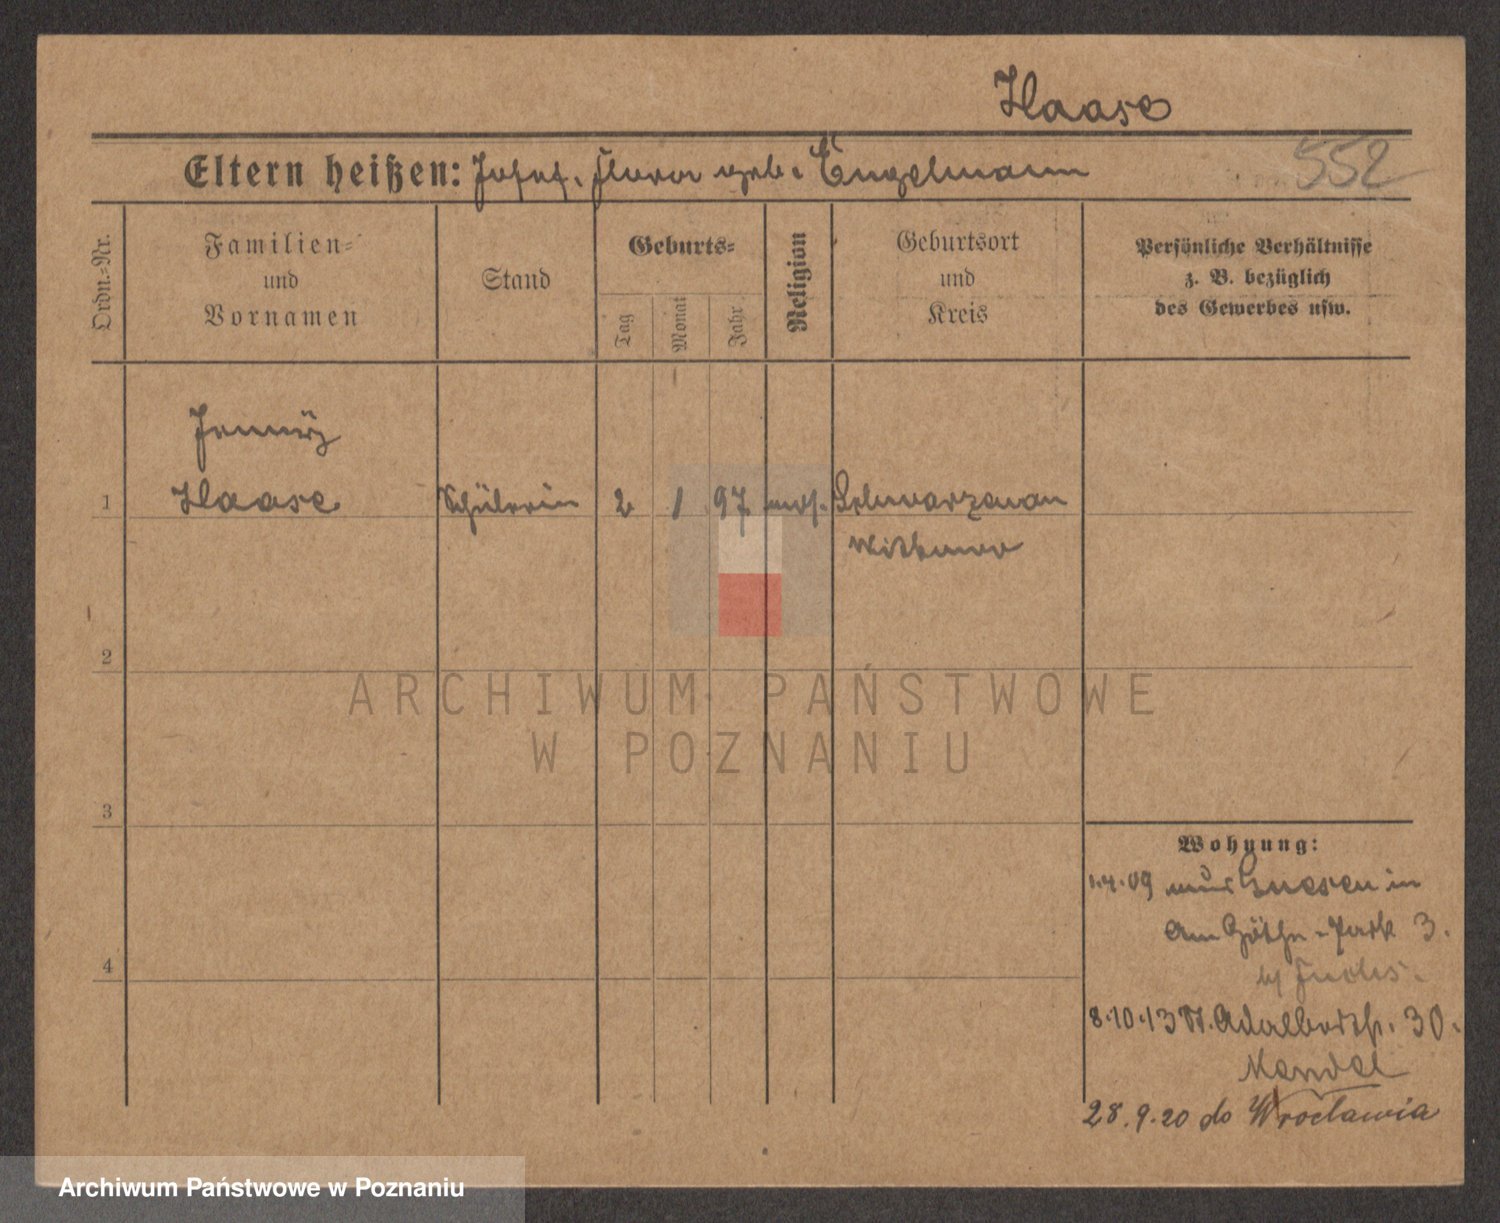 Haase
Eltern heißen: Josef, Flora geb. Engelmann 552
Ordn.-Nr.
Familien- und Vornamen
Stand
Geburts-
Tag
Monat
Jahr
Religion
Geburtsort und Kreis
Persönliche Verhältnisse z. B. bezüglich des Gewerbes usw.
Jenny
1 Haase Schülerin 2 1 97 mos. Schwarzenau
Witkowo
2
ARCHIWUM PAŃSTWOWE
W POZNANIU
3
Wohnung:
1.4.09 aus Gnesen in
Am Göthe-Park 3.
4
b/ Fuchs.
8.10.13 St. Adalbertstr. 30.
Mendel
28.9.20 do Wrocławia
Archiwum Państwowe w Poznaniu